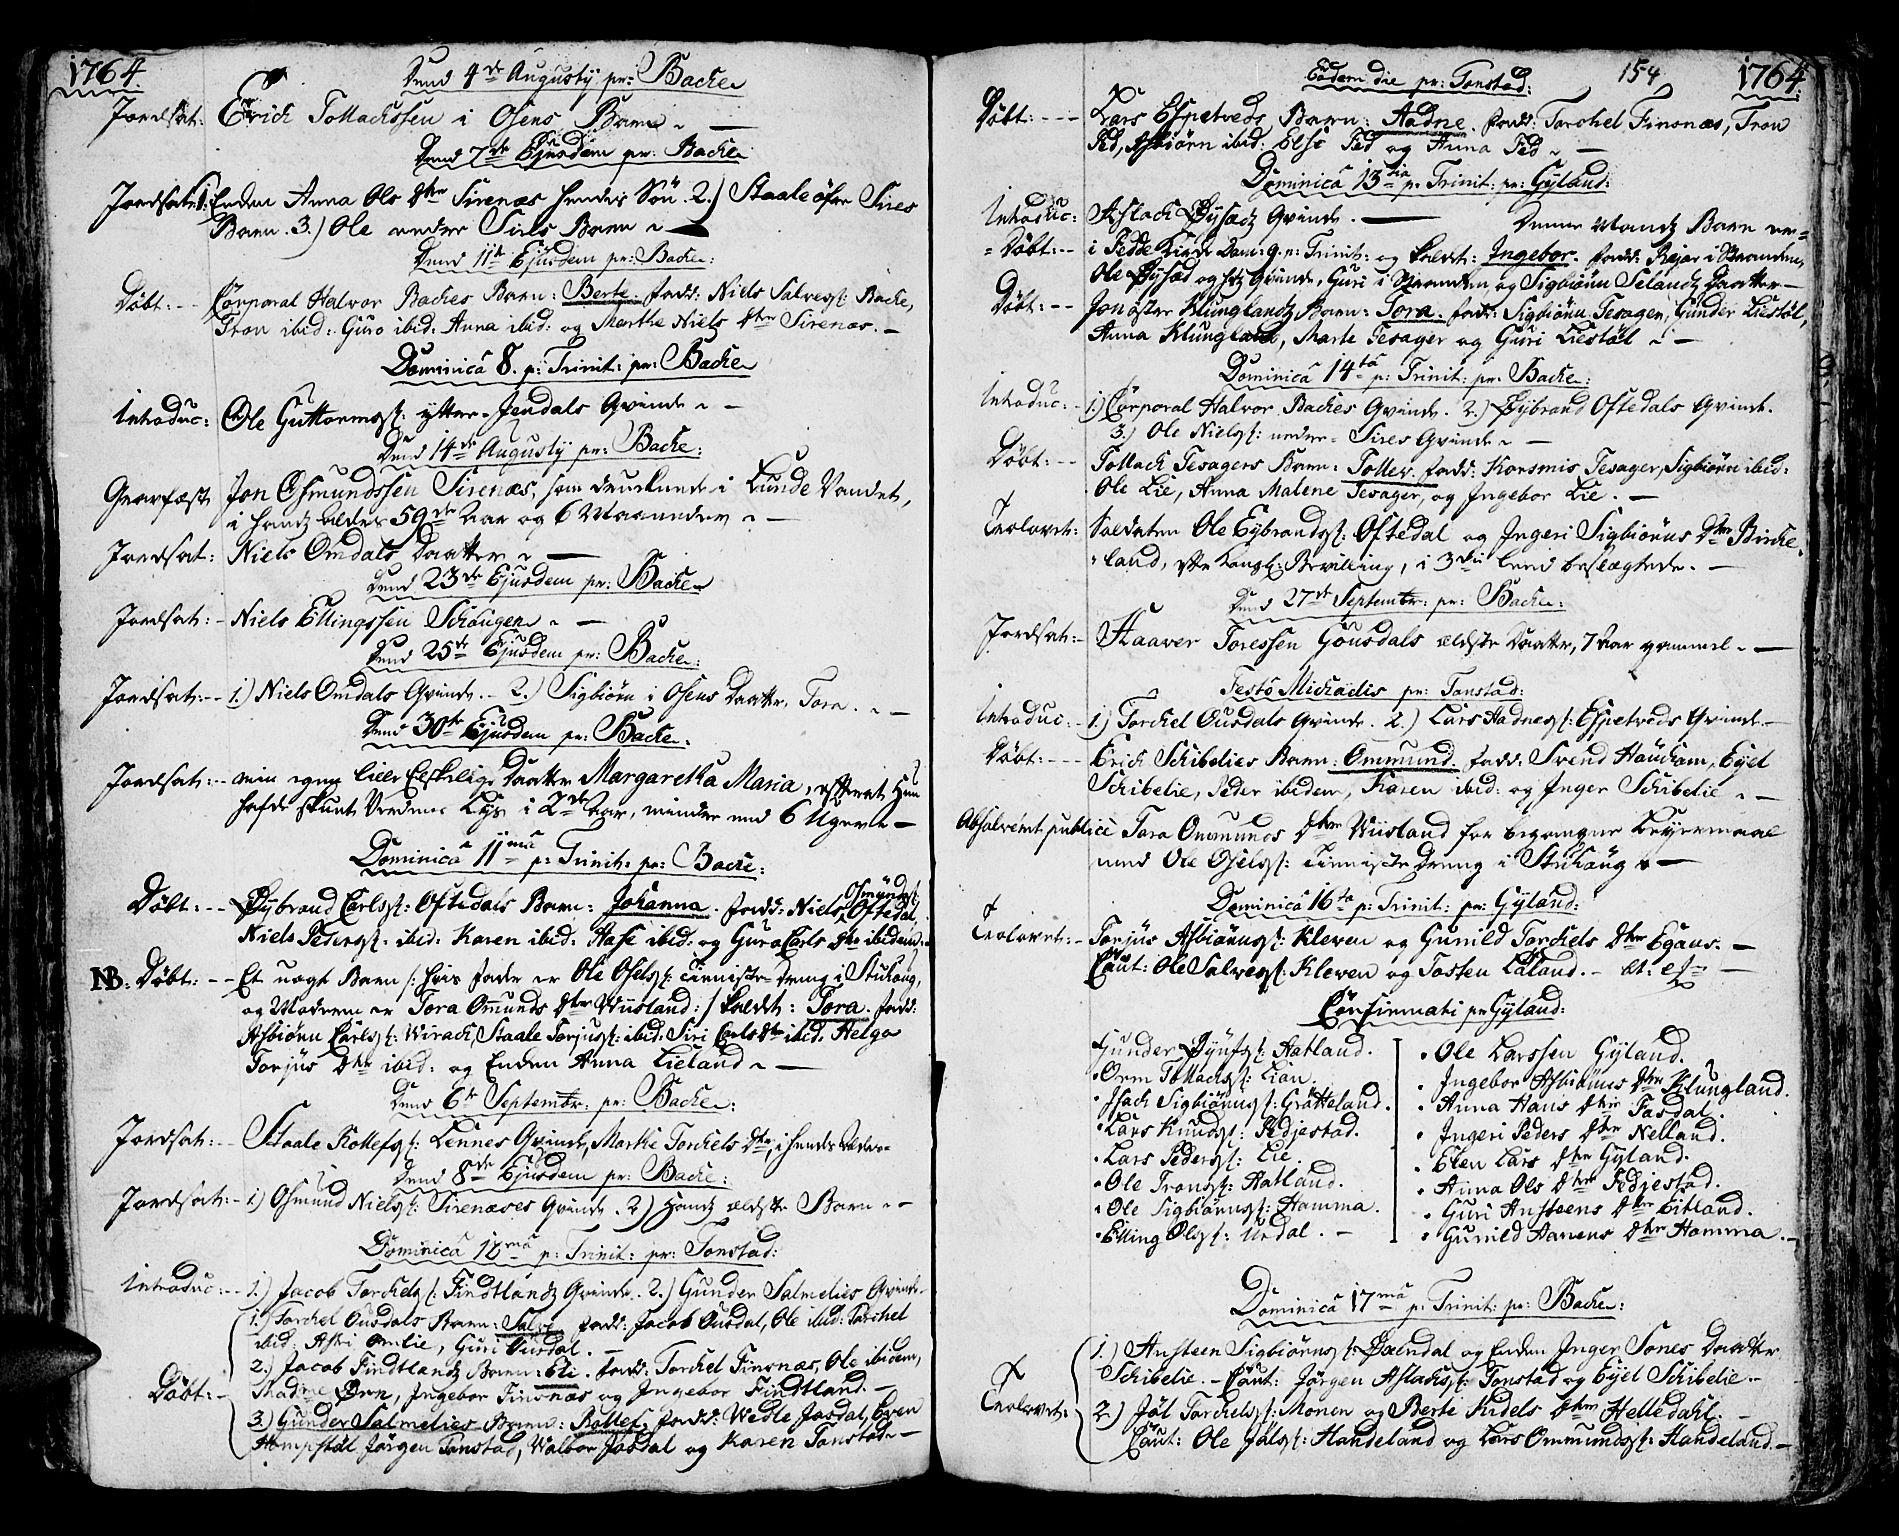 1764.
Dend 4de Augusty pr: Backe
Jordsat: Erich Tollachssen i Osens Barn
Dend 7de Ejusdem pr: Backe
Jordsat: 1. Enden Anna Ols Dtr Sirenæs hendes Sön. 2.) Staale öfre Sires
Barn. 3.) Ole nedre Sires Barn
Dend 11te Ejusdem pr: Backe:
Döbt: Corporal Halvor Backes Barn: Berte. fadd: Niels Salvegs: Backe,
Tron ibid: Guro ibid: Anna ibid: og Marthe Niels Dtr Sirenæs.
Dominica 8. p: Trinit: pr: Backe
Introduc: Ole Guttormss: ytter-Jendals Qvinde
Dend 14de Augusty pr: Backe:
Gravfæst Jon Osmundssen Sirenæs, som druknede i Lunde Vandet,
i hans alders 59de Aar og 6 Maaneder
Jordsat: Niels Omdals Daatter
Dend 23de Ejusdem pr: Backe
Jordsat: Niels Ellingssen Schougen
Dend 25de Ejusdem pr: Backe:
Jordsat: 1.) Niels Omdals Qvinde. 2.) Sigbiörn i Osens Daatter, Tora.
Dend 30te Ejusdem pr: Backe:
Jordsat: min egen lille Elskelige Daatter Margaretha Maria, efterat Hun
hafde skuet Verdens Lys i 2de Aar, mindre end 6 Uger
Dominica 11ma p: Trinit: pr: Backe:
Döbt: Eÿbrand Carlss: Oftedals Barn: Johanna. fadd: Niels Osmunds: Oftedal,
Niels Peders: ibid: Karen ibid: Aase ibid: og Guro Carls Dtr ibidem
NB: Döbt: Et uægt Barn /: hvis fader er Ole Osels: tienniste dreng i Stuhoug,
og Moderen er Tora Omunds Dtr Wiisland :/ kaldet: Tora. fadd:
Asbiörn Carls: Wirach, Staale Torjuss: ibid: Siri Carls Dtr ibid: Helga
Torjus Dtr ibid: og Enden Anna Lieland
Dend 6te Septembr: pr: Backe:
Jordsat: Staale Rollefs: Lennes Qvinde, Marthe Torchels Dtr, i hendes
Dend 8de Ejusdem pr: Backe:
Jordsat: 1) Osmund Niels: Sirenæses Qvinde. 2) Hans ældste Barn
Dominica 12ma p: Trinit: pr: Tonstad:
Introduc: 1.) Jacob Torchels: Findtlands Qvinde. 2.) Gunder Salmelies Qvinde
1. Torchel Ousdals Barn: Salve. fadd: Jacob Ousdal, Ole ibid: Torchel
ibid: Astri Omlie, Guri Ousdal.
2.) Jacob Findtlands Barn: Eli. fadd: Torchel Finsnæs, Ole ibidem,
Döbt: Madme Ørn, Ingebor Finsnæs og Ingebor Findtland.
3.) Gunder Salmelies Barn: Rollef. fadd: Wedle Josdal, Even
Hompstöl, Jörgen Tonstad, Walbor Josdal og Karen Tonstad
154
1764.
Eodem die pr: Tonstad:
Döbt: Lars Espetveds Barn: Aadne. fadd: Torchel Finsnæs, Tron
Fed, Asbiörn ibid: Else Fed og Anna Fed
Dominica 13tia p: Trinit: pr: Gyland:
Introduc: Aslach Øysads Qvinde. Denne Mands Barn er
Döbt: i Fedde Kirke Dom: 9. p: Trinit: og kaldet: Ingebor. fadd: Rejar i Branden,
Ole Øysad og hs Qvinde, Guri i Branden og Sigbiörn Selands Daatter
Döbt: Jon öfter Klunglands Barn: Tora. fadd: Sigbiörn Tesager, Gunder Liestöl,
Anna Klungland, Marte Tesager og Guri Liestöl
Dominica 14ta p: Trinit: pr: Backe:
Introduc: 1.) Corporal Halvor Backes Qvinde. 2.) Eÿbrand Oftedals Qvinde.
3.) Ole Niels: nedre-Sires Qvinde
Döbt: Tollach Tesagers Barn: Tollev. fadd: Korsmis Tesager, Sigbiörn ibid:
Ole Lie, Anna Malene Tesager, og Ingebor Lie.
Trolovet: Soldaten Ole Eybrands: Oftedal og Ingeri Sigbiörns Dtr Birke-
land, efter Kongl: Bevilling, i 3die leed beslægtede.
Dend 27de Septembr: pr: Backe:
Jordsat: Haaver Toressen Gousdals ældste Daatter, 7 Aar gammel
Festo Michaëlis pr: Tonstad:
Introduc: 1.) Torchel Ousdals Qvinde. 2.) Lars Aadnes: Espetveds Qvinde
Döbt: Erich Schibelies Barn: Ommund. fadd: Svend Houckom, Eyel
Schibelie, Peder ibidem, Karen ibid: og Inger Schibelie
Absolveret publicè Tora Onmunds Dtr Wiisland for begangne Leyermaal
med Ole Osels: tienniste Dreng i Stuhoug
Dominica 16ta p: Trinit: pr: Gyland:
Trolovet: Torjus Asbiörns: Kleven og Gunild Torchels Dtr Egaas.
Caut: Ole Salves: Kleven og Tosten Laland.
Confirmati pr Gyland:
Gunder Øÿufs: Aatland.
Orm Tollachs: Lian.
Isach Sigbiörns: Grötteland.
Lars Knuds: Fedjestad.
Lars Peders: Lie.
Ole Trons: Aatland.
Ole Sigbiörns: Hamma.
Elling Ols: Urdal.
Ole Larssen Gyland.
Ingebor Asbiörns Dtr Klungland.
Anna Hans Dtr Fasdal.
Ingeri Peders Dtr Nelland.
Elen Lars Dtr Gyland.
Anna Ols Dtr Fedjestad.
Guri Ansteens Dtr Eitland.
Gunild Aanens Dtr Hamma.
Dominica 17ma p: Trinit: pr: Backe:
1.) Ansteen Sigbiörns: Øxendal og Enden Inger Tones Daatter
Schibelie. Caut: Jörgen Aslachs: Tonstad og Eyel Schibelie
Trolovet: 2.) Jöl Torchels: Monen og Berte Kidels Dtr Helledahl.
Caut: Ole Jöls: Handeland og Lars Ommunds: Handeland